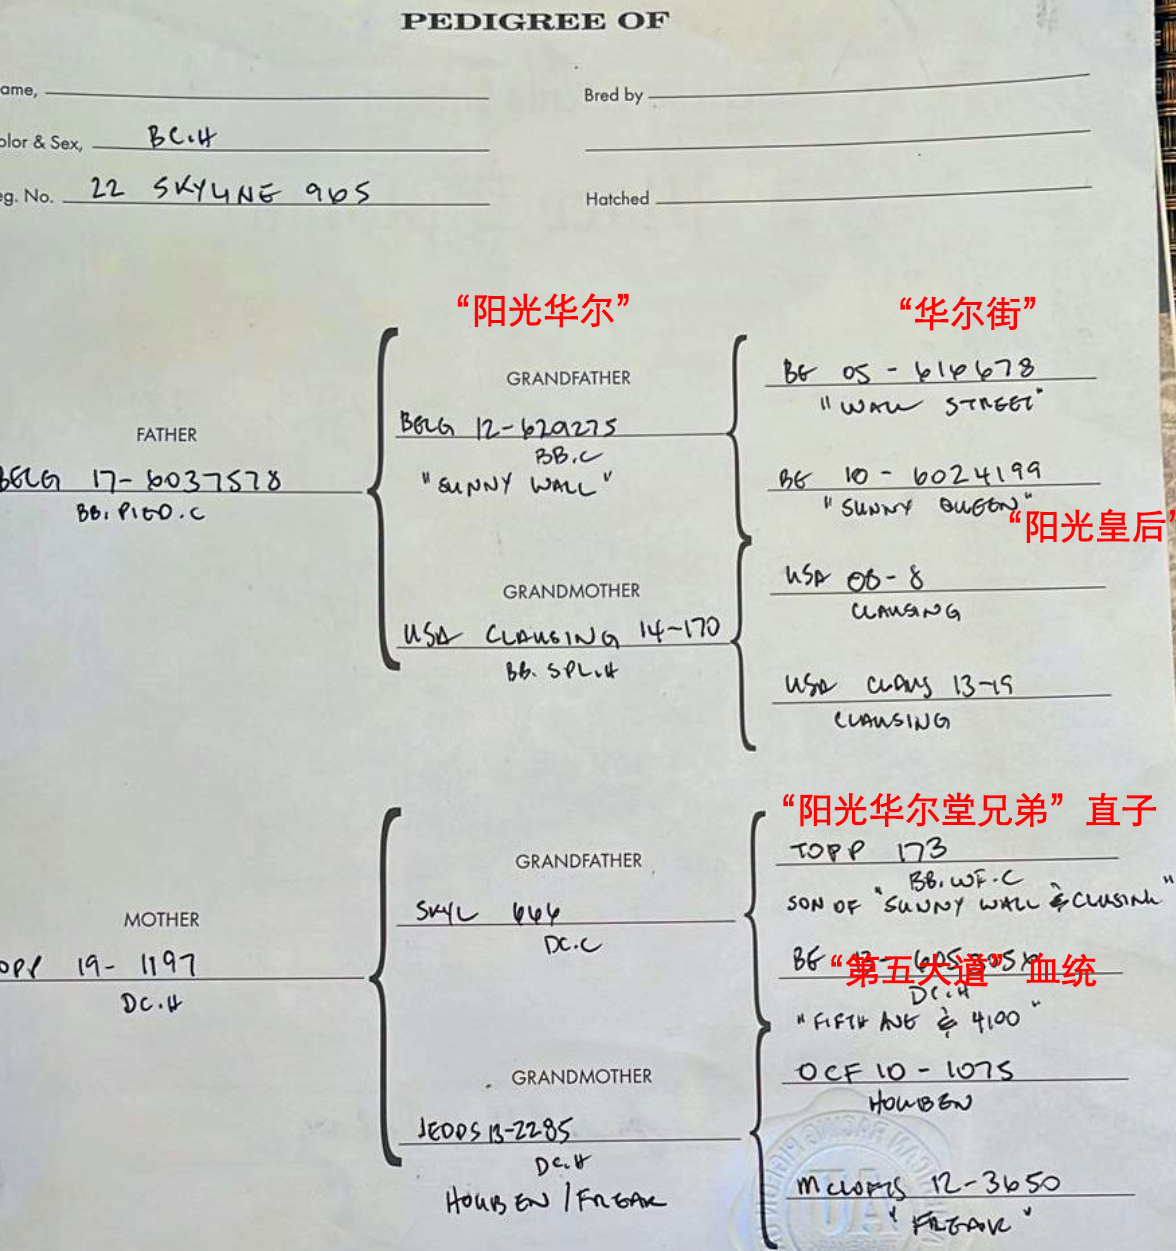 PEDIGREE OF
ame,
Bred by
olor & Sex, BC.H
eg. No. 22 SKYLINE 965
Hatched
“阳光华尔”
“华尔街”
GRANDFATHER
BE 05-616678
"WALL STREET"
BELG 12-629275
BB.C
"SUNNY WALL"
FATHER
BELG 17-6037578
BB.PIED.C
BE 10-6024199
"SUNNY QUEEN"
“阳光皇后”
GRANDMOTHER
USA 08-8
CLAUSING
USA CLAUSING 14-170
BB.SPL.H
USA CLAUS 13-19
CLAUSING
“阳光华尔堂兄弟” 直子
GRANDFATHER
TOPP 173
BB.WF.C
SON OF "SUNNY WALL & CLUSING"
SKYL 666
DC.C
MOTHER
OPP 19-1197
DC.H
BE
“第五大道” 血统
DC.H
"FIFTH AVE & 4100"
GRANDMOTHER
OCF 10-1075
HOUBEN
JEDDS 13-2285
DC.H
HOUBEN/FREAK
MCLOFTS 12-3650
"FREAK"
AU